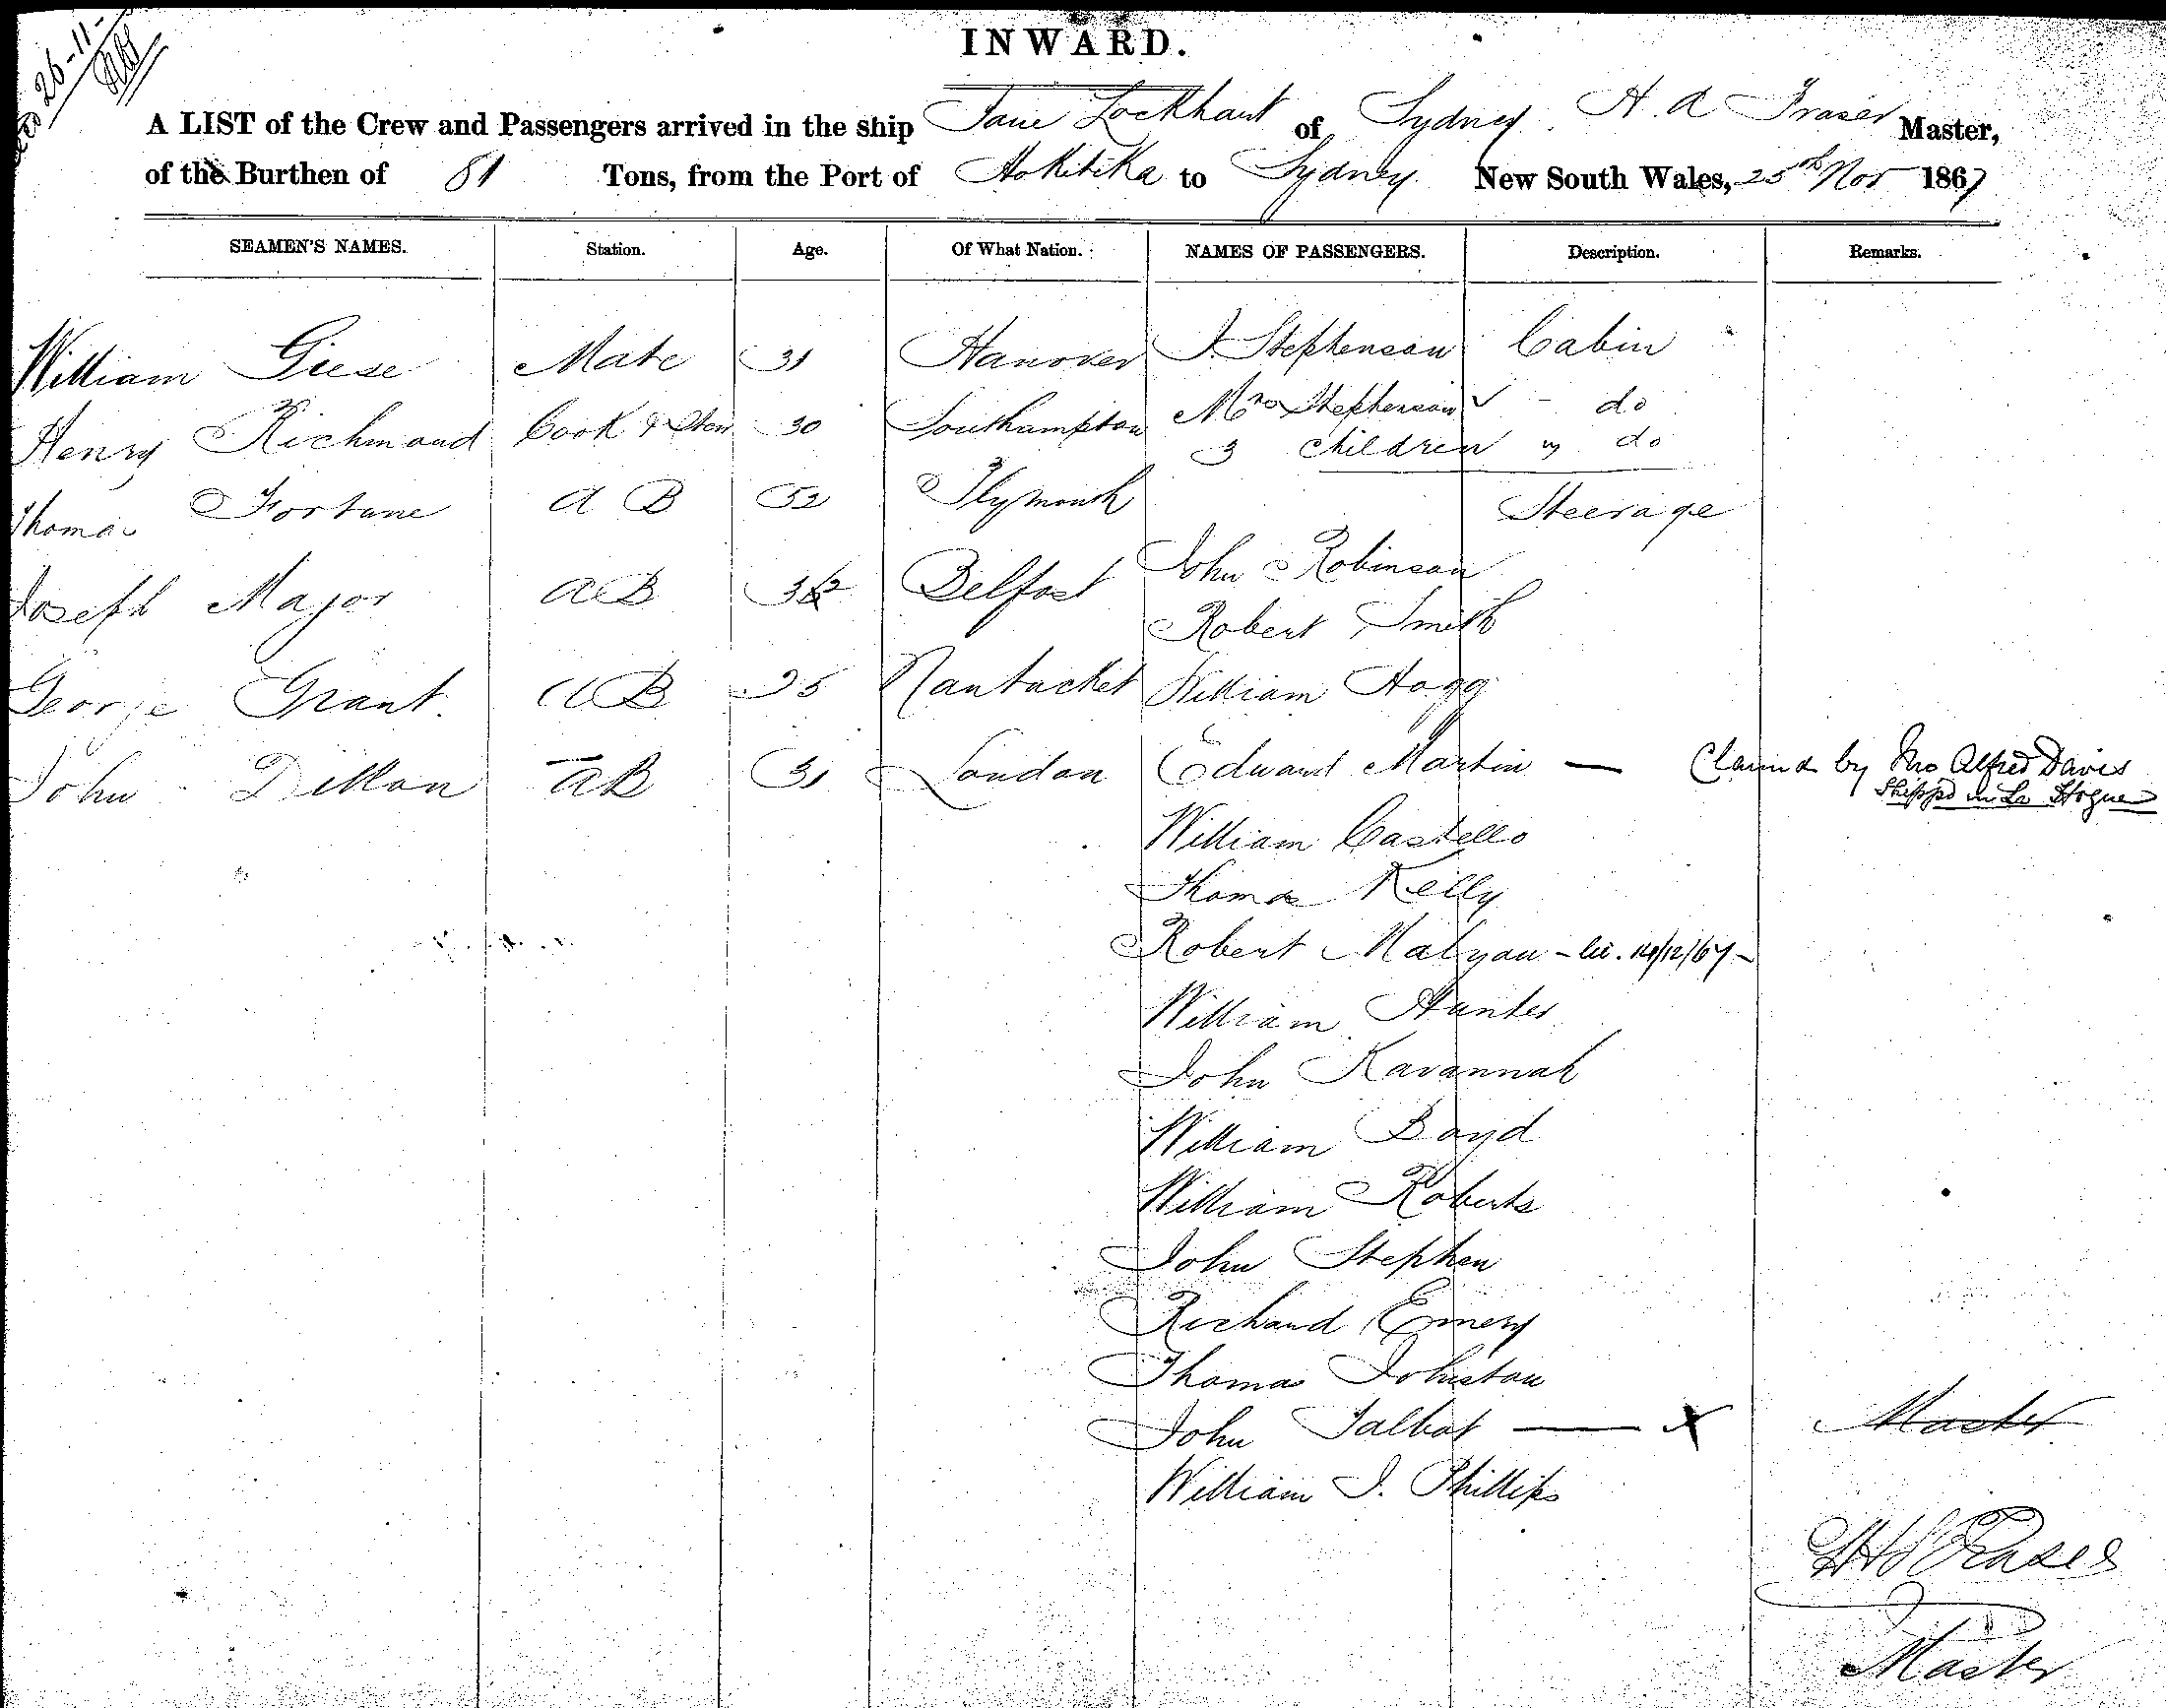 26-11-
INWARD.
A LIST of the Crew and Passengers arrived in the ship Jane Lockhart of Sydney. H. A Fraser Master,
of the Burthen of 81 Tons, from the Port of Hokitika to Sydney New South Wales, 25th Nov 1867
SEAMEN'S NAMES. Station. Age. Of What Nation. NAMES OF PASSENGERS. Description. Remarks.
William Giese Mate 31 Hanover J. Stephenson Cabin
Henry Richmond Cook & Stew 30 Southampton Mrs Stephenson - do
3 children do
Thomas Fortune A B 52 Plymouth Steerage
John Robinson
Joseph Major AB 32 Belfast
Robert Smith
George Grant. AB 25 Nantucket William Hogg
John Dillon AB 31 London Edward Martin — Claimed by Mrs Alfred Davis
Shipped in La Hogue
William Castello
Thomas Kelly
Robert Malyan - 14/12/67 -
William Hunter
John Kavannah
William Boyd
William Roberts
John Stephen
Richard Emery
Thomas Johnston
John Talbot — X Master
William J. Phillips
H A Fraser
Master